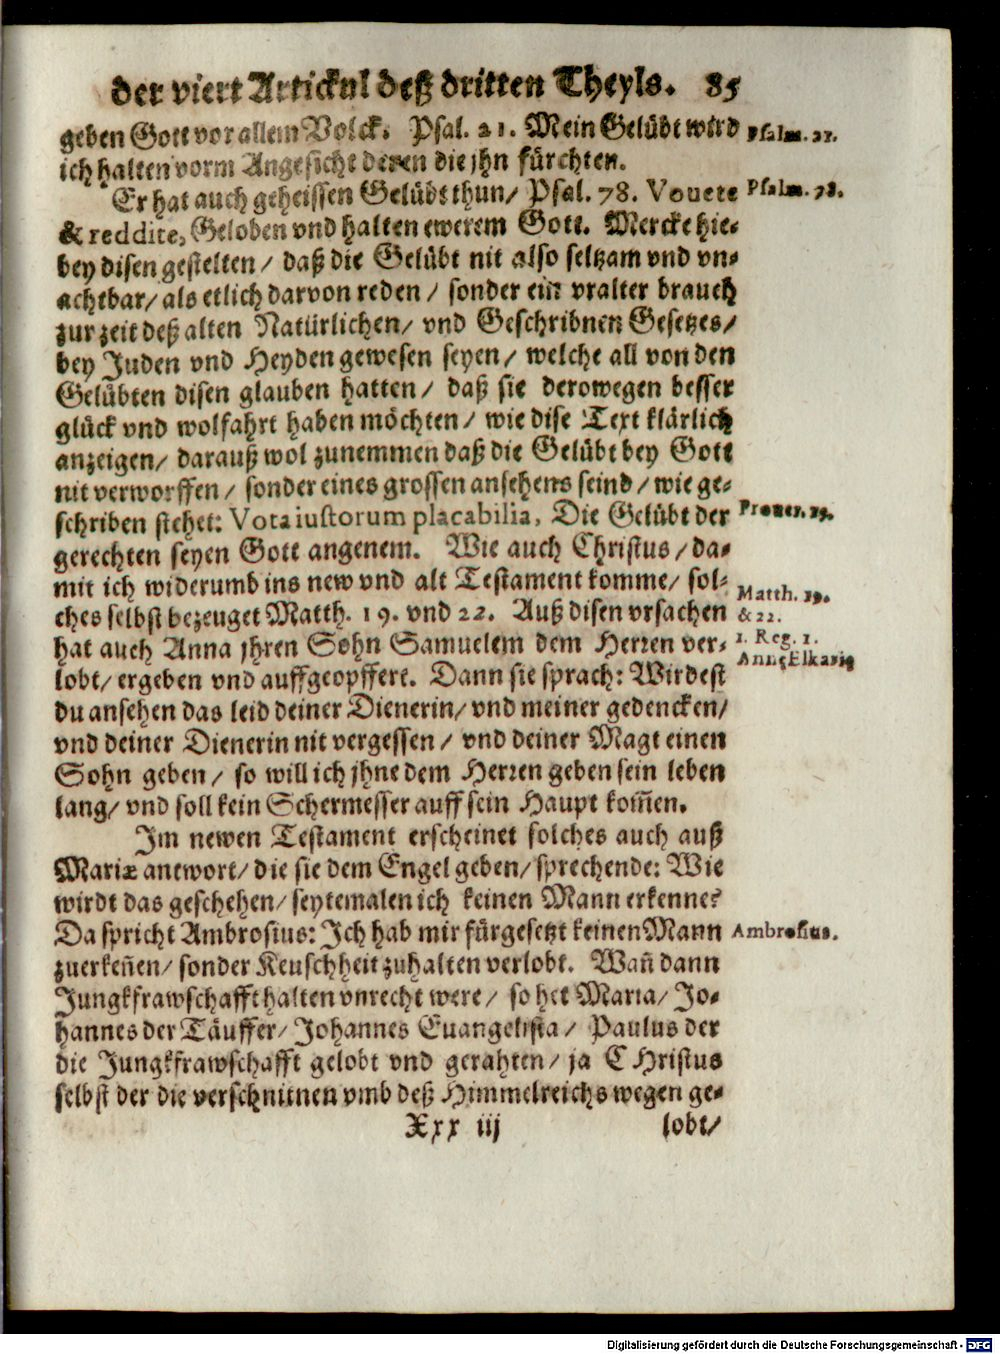 der viert Artickul deß dritten Theyls. 85
geben Gott vor allem Volck. Psal. 21. Mein Gelübt wird
Psalm. 21.
ich halten vorm Angesicht deren die jhn fürchten.
Er hat auch geheissen Gelübt thun/ Psal. 78. Vovete
Psalm. 78.
& reddite, Geloben vnd halten ewerem Gott. Mercke hie-
bey disen gestelten/ daß die Gelübt nit also seltzam vnd vn-
achtbar/ als etlich darvon reden/ sonder ein vralter brauch
zur zeit deß alten Natürlichen/ vnd Geschribnen Gesetzes/
bey Juden vnd Heyden gewesen seyen/ welche all von den
Gelübten disen glauben hatten/ daß sie derowegen besser
glück vnd wolfahrt haben möchten/ wie dise Text klärlich
anzeigen/ darauß wol zunemmen daß die Gelübt bey Gott
nit verworffen/ sonder eines grossen ansehens seind/ wie ge-
schriben stehet: Vota iustorum placabilia, Die Gelübt der
Prouer.
gerechten seyen Gott angenem. Wie auch Christus/ da-
mit ich widerumb ins new vnd alt Testament komme/ sol-
Matth. 19.
ches selbst bezeuget Matth. 19. vnd 22. Auß disen vrsachen
& 22.
hat auch Anna jhren Sohn Samuelem dem Herren ver-
1. Reg. 1.
lobt/ ergeben vnd auffgeopffert. Dann sie sprach: Wirdest
du ansehen das leid deiner Dienerin/ vnd meiner gedencken/
vnd deiner Dienerin nit vergessen/ vnd deiner Magt einen
Sohn geben/ so will ich jhne dem Herren geben sein leben
lang/ vnd soll kein Schermesser auff sein Haupt kom̃en.
Im newen Testament erscheinet solches auch auß
Mariæ antwort/ die sie dem Engel geben/ sprechende: Wie
wirdt das geschehen/ seytemalen ich keinen Mann erkenne?
Da spricht Ambrosius: Ich hab mir fürgesetzt keinen Mann
Ambrosius.
zuerkeñen/ sonder Keuschheit zuhalten verlobt. Wañ dann
Jungkfrawschafft halten vnrecht were/ so het Maria/ Jo-
hannes der Täuffer/ Johannes Euangelista/ Paulus der
die Jungkfrawschafft gelobt vnd gerahten/ ja CHristus
selbst der die verschnitnen vmb deß Himmelreichs wegen ge-
Xxx iij lobt/
Digitalisierung gefördert durch die Deutsche Forschungsgemeinschaft - DFG